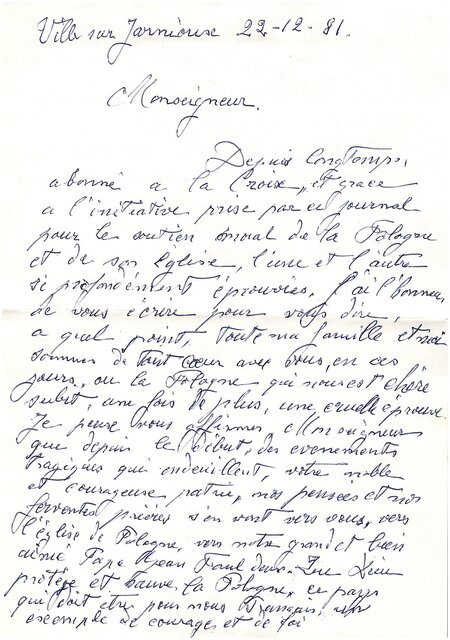 Ville sur Jarnioux 22-12-81.
Monseigneur.
Depuis longtemps,
abonné a la Croix, et grace
a l'initiative prise par ce journal
pour le soutien moral de la Pologne
et de son église, l'une et l'autre
si profondément éprouvées, j'ai l'honneur
de vous écrire pour vous dire,
a quel point, toute ma famille et moi
sommes de tout cœur avec vous, en ces
jours, ou la Pologne qui nous est chère
subit, une fois de plus, une cruelle épreuve
Je peux vous affirmer Monseigneur
que depuis le début, des evenements
tragiques qui endeuillent, votre noble
et courageuse patrie, nos pensées et nos
ferventes prières s'en vont vers vous, vers
l'église de Pologne, vers notre grand et bien
aimé Pape Jean Paul deux. Que Dieu
protège et sauve la Pologne, ce pays
qui doit etre pour nous Français, un
exemple de courage et de foi